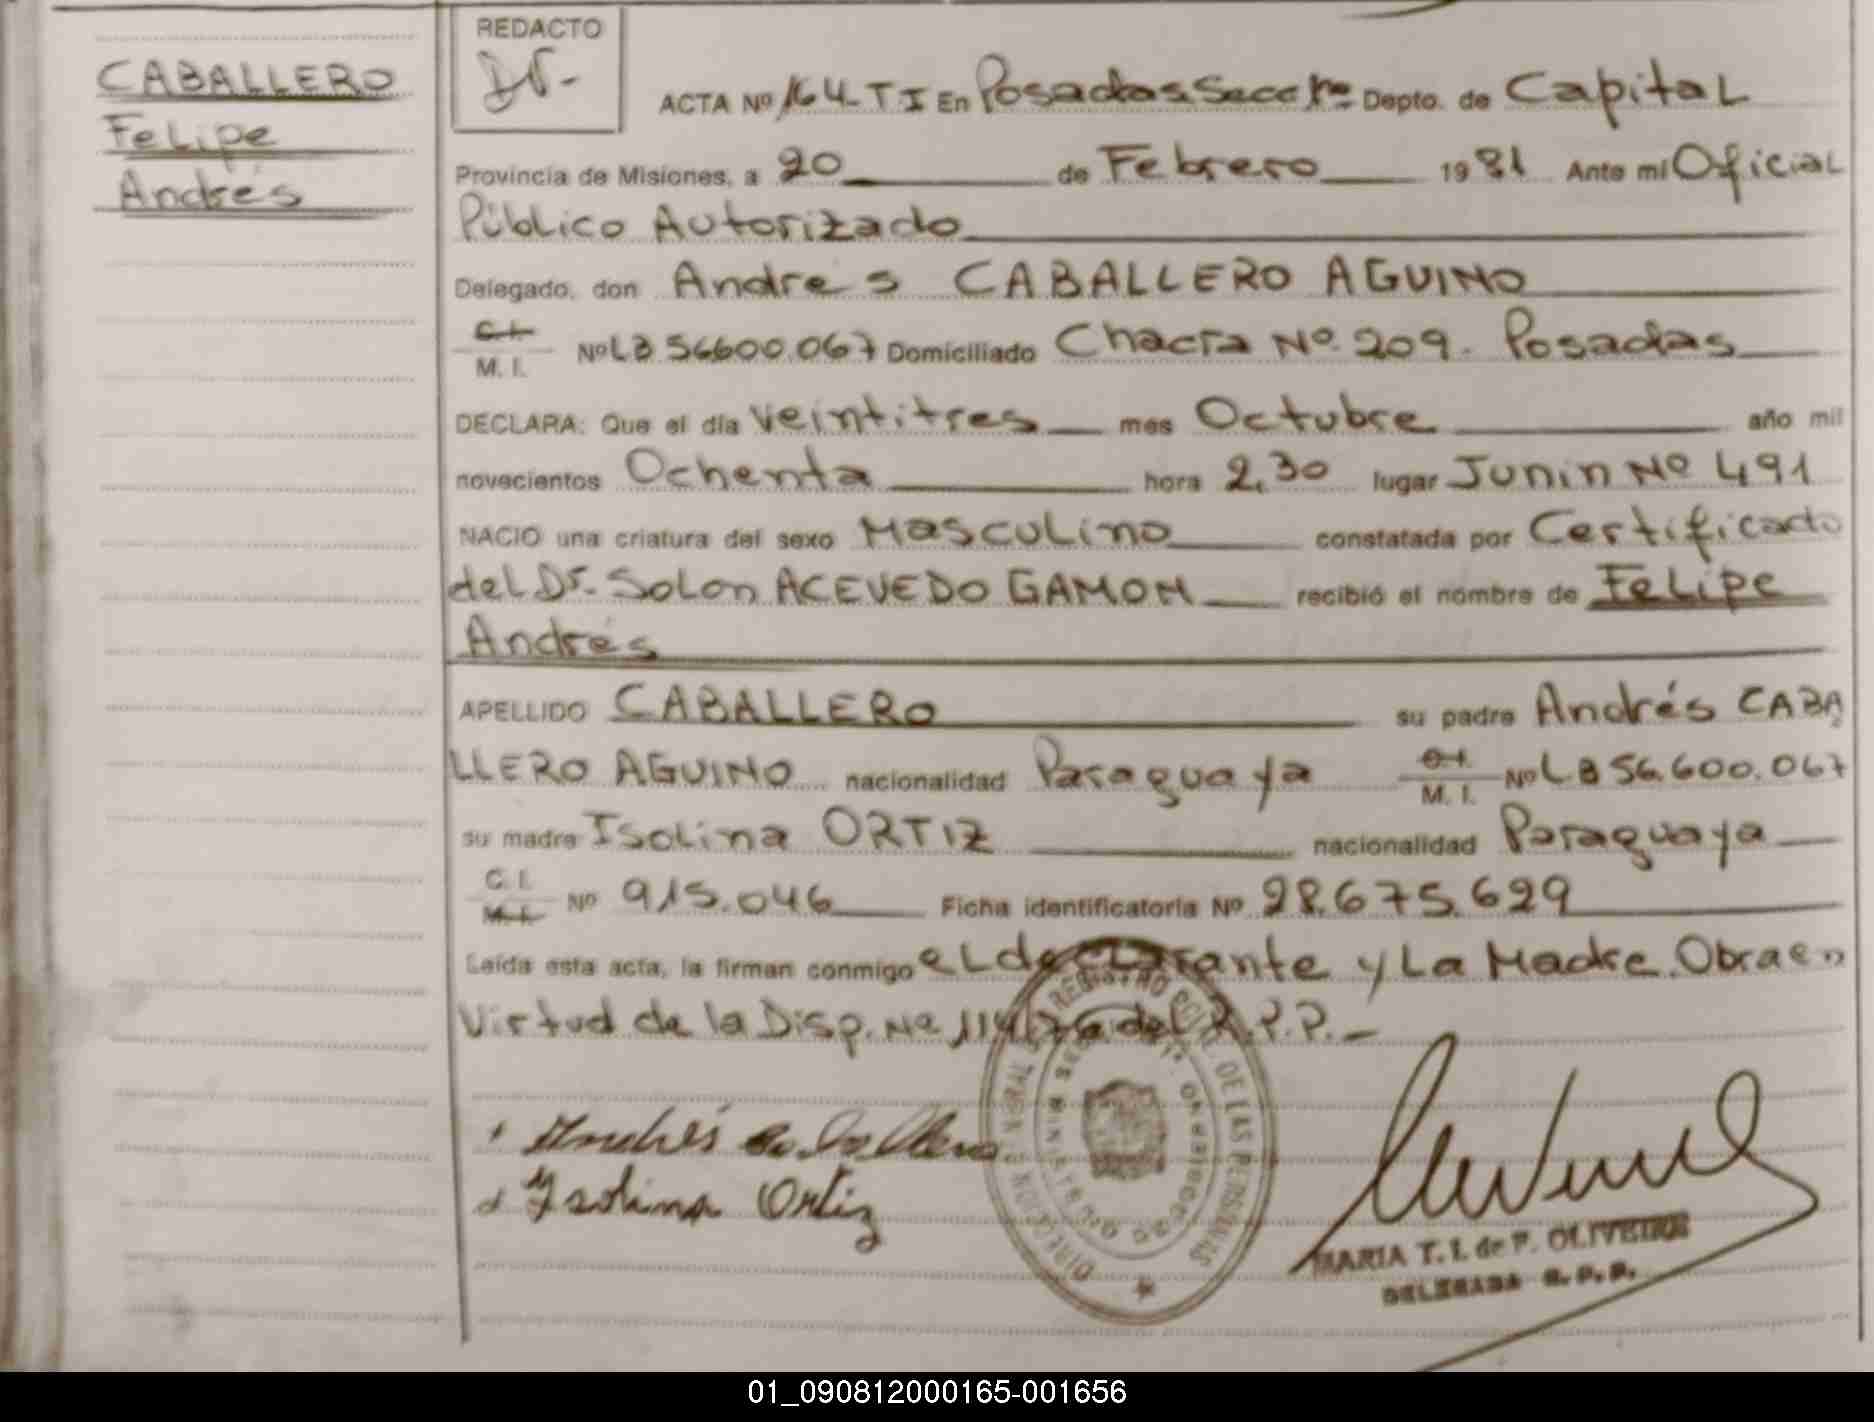 CABALLERO
Felipe
Andrés
REDACTO
ACTA Nº 164-T.I En Posadas Secc 1ra Depto. de Capital
Provincia de Misiones, a 20 de Febrero 1981 Ante mi Oficial
Público Autorizado
Delegado, don Andres CABALLERO AGUINO
C.I.
M. I. Nº LB 56600.067 Domiciliado Chacra Nº 209. Posadas
DECLARA: Que el día Veintitres mes Octubre año mil
novecientos Ochenta hora 2,30 lugar Junin Nº 491
NACIO una criatura del sexo Masculino constatada por Certificado
del Dr. Solon ACEVEDO GAMON recibió el nombre de Felipe
Andrés
APELLIDO CABALLERO su padre Andrés CABA
LLERO AGUINO nacionalidad Paraguaya C.I. M. I. Nº LB 56.600.067
su madre Isolina ORTIZ nacionalidad Paraguaya
C. I. M. I. Nº 915.046 Ficha identificatoria Nº 28.675.629
Leída esta acta, la firman conmigo el declarante y La Madre. Obra en
Virtud de la Disp. Nº del R.P.P.
Andrés Caballero
Ysolina Ortiz
DIRECCION GENERAL DEL REGISTRO PCIAL. DE LAS PERSONAS
MARIA T. I. de P. OLIVEIRA
DELEGADA R. P. P.
01_090812000165-001656